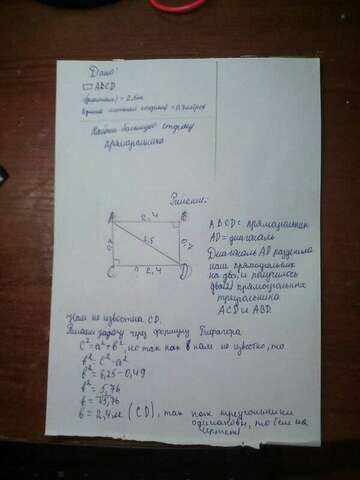 Дано:
ABCD
(диагональ) = 2,5м
Длина меньшей стороны = 0,7
Найти большую сторону
прямоугольника
Решение:
A 2,4 B
2,5
0,7
C 2,4 D
ABCD = прямоугольник
AD = диагональ
Диагональ AD разделила
наш прямоугольник
на два, и получилось
два прямоугольных
треугольника
ACD и ABD.
Нам не известна CD.
Решаем задачу через формулу Пифагора
c² = a² + b², но так как b нам не известно, то
b² = c² - a²
b² = 6,25 - 0,49
b² = 5,76
b = √5,76
b = 2,4м (CD), так как треугольники
одинаковы, то (см на
чертеж)